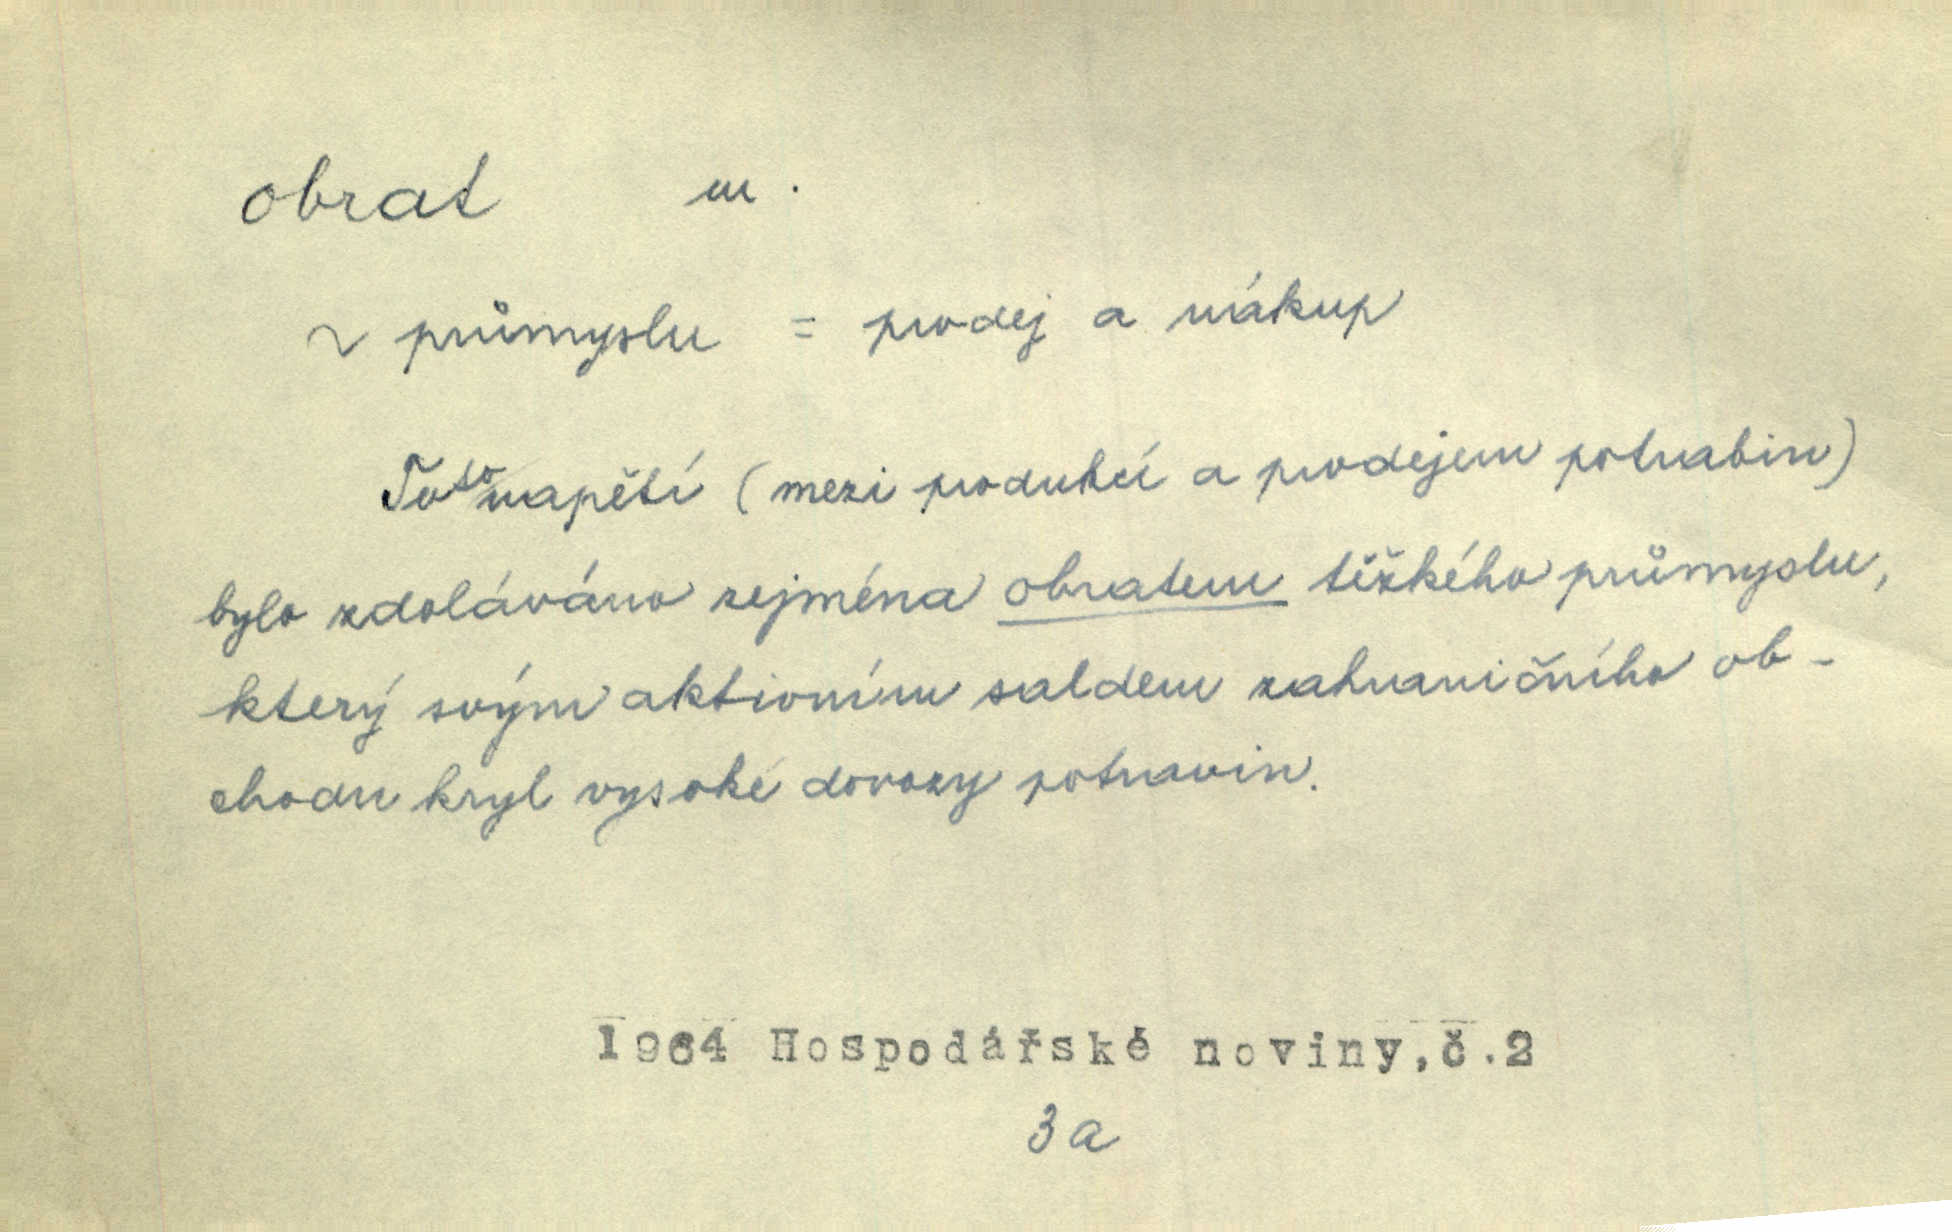 obrat m.
v průmyslu = prodej a nákup
Toto napětí (mezi produkcí a prodejem potrabin)
bylo zdoláváno zejména obratem těžkého průmyslu,
který svým aktivním saldem zahraničního ob-
chodu kryl vysoké dovozy potravin.
1964 Hospodářské noviny,č.2
3a